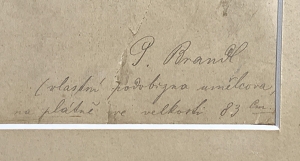 P. Brandl
(vlastní podobizna umělcova,
na plátně ve velkosti 83 cm.